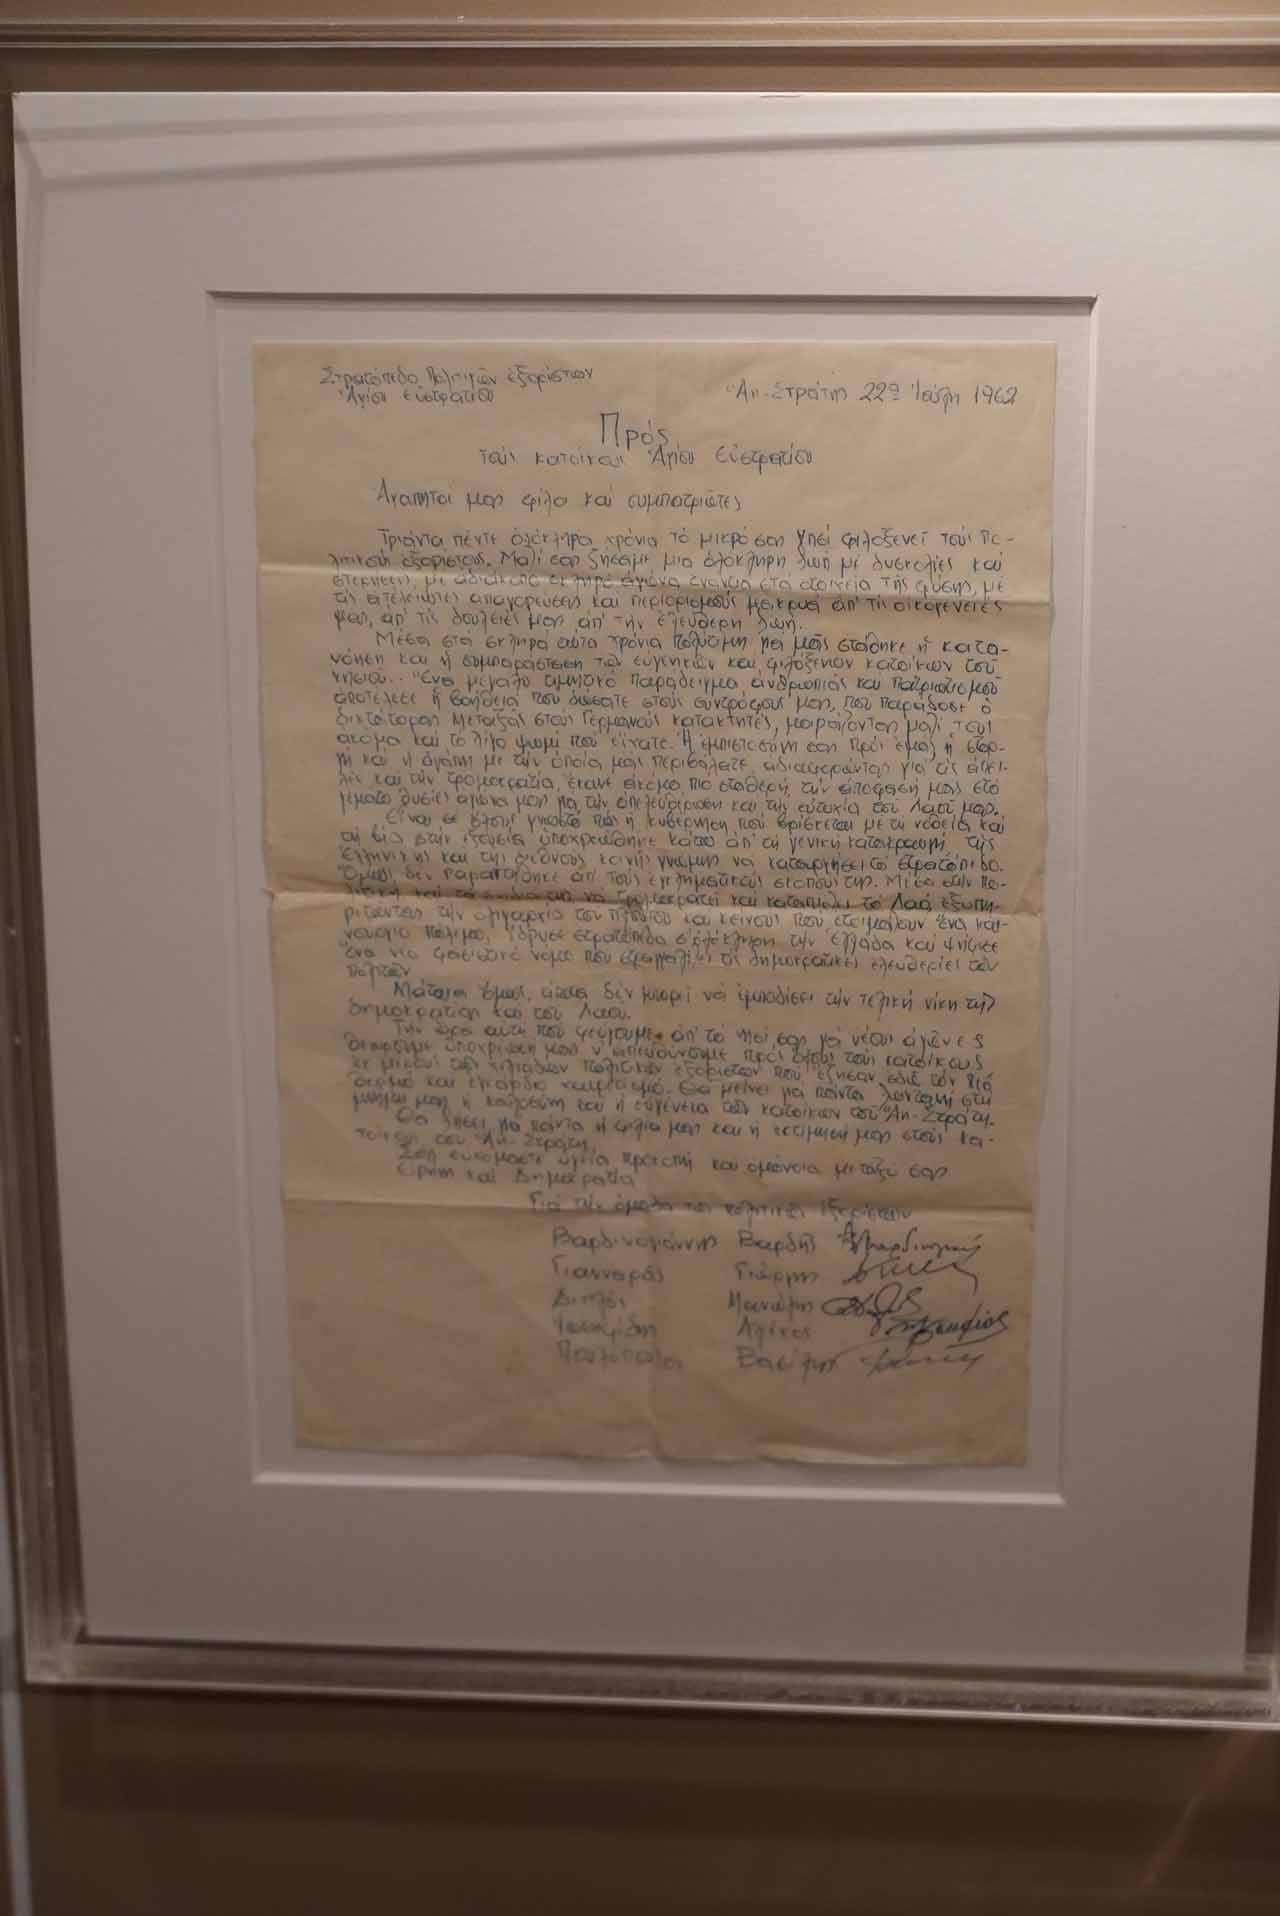 Στρατόπεδο Πολιτικῶν ἐξορίστων
Ἁγίου Εὐστρατίου
Ἁη-Στράτης 22α Ἰούλη 1962
Πρός
τούς κατοίκους Ἁγίου Εὐστρατίου
Ἀγαπητοί μας φίλοι καί συμπατριῶτες
Τριάντα πέντε ὁλόκληρα χρόνια τό μικρό σας νησί φιλοξενεῖ τούς πο-
λιτικούς ἐξορίστους. Μαζί σας ζήσαμε μια ὁλόκληρη ζωή μέ δυσκολίες καί
στερήσεις, μέ ἀδιάκοπο σκληρό ἀγώνα ἐνάντια στά στοιχεία τῆς φύσης, μέ
τίς ἀτέλειωτες απαγορεύσεις καί περιορισμούς μακρυά ἀπ' τίς οἰκογένειές
μας, ἀπ' τίς δουλειές μας ἀπ' τήν ἐλεύθερη ζωή.
Μέσα στά σκληρά αὐτά χρόνια πολύτιμη γιά μᾶς στάθηκε ἡ κατα-
νόηση καί ἡ συμπαράσταση τῶν εὐγενικῶν καί φιλόξενων κατοίκων τοῦ
νησιοῦ.. Ἕνα μεγάλο τιμητικό παράδειγμα ἀνθρωπιάς καί πατριωτισμοῦ
ἀποτέλεσε ἡ βοήθεια πού δώσατε στούς συντρόφους μας, πού παράδοσε ὁ
δικτάτορας Μεταξάς στούς Γερμανούς κατακτητές, μοιράζοντας μαζί τους
ἀκόμα καί τό λίγο ψωμί πού είχατε. Ἡ ἐμπιστοσύνη σας πρός ἐμάς ἡ στορ-
γή καί ἡ ἀγάπη μέ τήν ὁποία μάς περιβάλατε, ἀδιαφορώντας γιά τίς ἀπει-
λές καί τήν τρομοκρατία, ἔκανε ἀκόμα πιο σταθερή τήν ἀπόφασή μας στό
γεμάτο θυσίες ἀγώνα μας γιά τήν ἀπελευθέρωση καί τήν εὐτυχία τοῦ Λαοῦ μας.
Εἶναι σέ ὅλους γνωστό πώς ἡ κυβέρνηση πού βρίσκεται μέ τή νοθεία καί
τή βία στήν ἐξουσία ὑποχρεώθηκε κάτω ἀπ' τή γενική κατακραυγή τῆς
Ἑλληνικῆς καί τῆς διεθνοῦς κοινῆς γνώμης νά καταργήσει τό στρατόπεδο.
Ὅμως δέν παραιτήθηκε ἀπ' τούς ἐγκληματικούς σκοπούς της. Μέσα στήν πο-
λιτική καί τά σχέδιά της νά τρομοκρατεί καί καταπιέζει τό Λαό ἐξυπη-
ρετώντας τήν ολιγαρχία του πλούτου καί κείνους πού ετοιμάζουν ἕνα και-
νούργιο πόλεμο, ἵδρυσε στρατόπεδα σ' ὁλόκληρη τήν Ἑλλάδα καί ψήφισε
ἕνα νέο φασιστικό νόμο πού στραγγαλίζει τίς δημοκρατικές ελευθερίες τῶν
πολιτῶν
Μάταια ὅμως, τίποτα δέν μπορεί νά ἐμποδίσει τήν τελική νίκη τῆς
δημοκρατίας καί τοῦ Λαοῦ.
Τήν ὥρα αὐτή πού φεύγουμε ἀπ' τό νησί σας γιά νέους ἀγῶνες
θεωροῦμε ὑποχρέωσή μας ν' ἀπευθύνουμε πρός ὅλους τούς κατοίκους
ἐκ μέρους τῶν χιλιάδων πολιτικῶν ἐξορίστων πού ἔζησαν ἐδῶ τόν πιό
θερμό καί ἐγκάρδιο χαιρετισμό. Θά μείνει γιά πάντα ζωντανή στή
μνήμη μας ἡ καλωσύνη καί ἡ εὐγένεια τῶν κατοίκων τοῦ Ἁη-Στράτη.
Θά ζήσει γιά πάντα ἡ φιλία μας καί ἡ εκτίμησή μας στούς κα-
τοίκους τοῦ Ἁη-Στράτη.
Σᾶς εὐχόμαστε ὑγεία προκοπή καί ὁμόνοια μεταξύ σας
Εἰρήνη καί Δημοκρατία
Γιά τήν ὁμάδα τῶν πολιτικῶν ἐξορίστων
Βαρδινογιάννης Βαρδής
Γιανναράς Γιώργης
Μανώλης
Ἀλέκος
Βασίλης